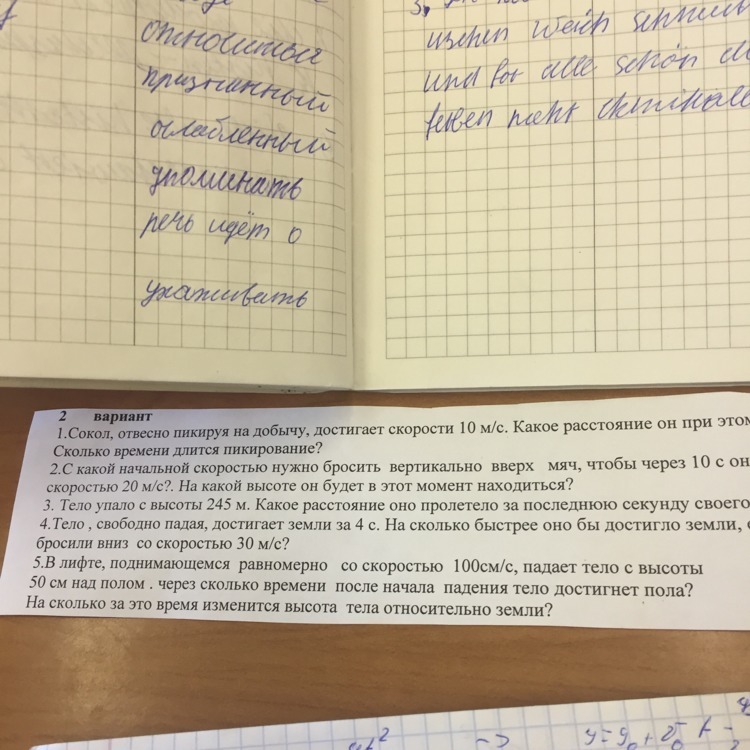 относиться
признанный
ослабленный
упоминать
речь идёт о
ухаживать
3.
weich
und for alle schön
2 вариант
1.Сокол, отвесно пикируя на добычу, достигает скорости 10 м/с. Какое расстояние он при этом
Сколько времени длится пикирование?
2.С какой начальной скоростью нужно бросить вертикально вверх мяч, чтобы через 10 с он
скоростью 20 м/с?. На какой высоте он будет в этот момент находиться?
3. Тело упало с высоты 245 м. Какое расстояние оно пролетело за последнюю секунду своего
4.Тело , свободно падая, достигает земли за 4 с. На сколько быстрее оно бы достигло земли,
бросили вниз со скоростью 30 м/с?
5.В лифте, поднимающемся равномерно со скоростью 100см/с, падает тело с высоты
50 см над полом . через сколько времени после начала падения тело достигнет пола?
На сколько за это время изменится высота тела относительно земли?